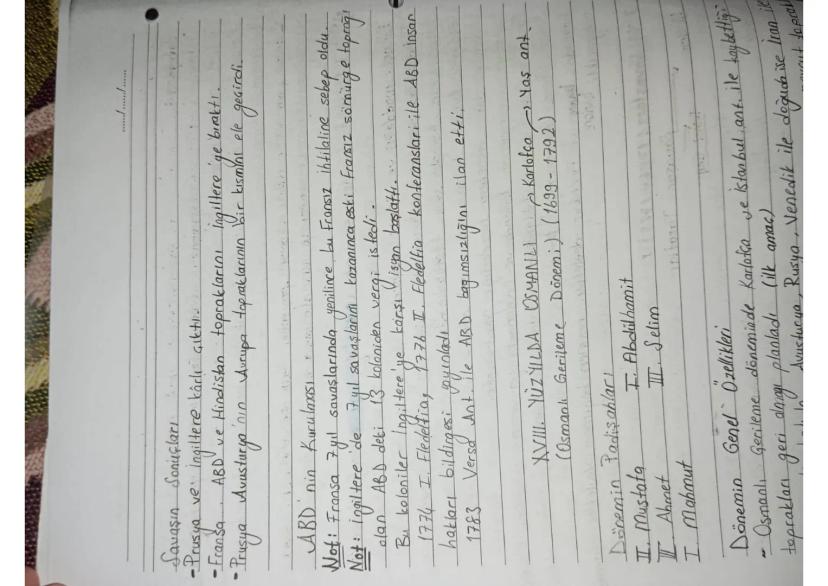 ..../..../....
Savaşın Sonuçları
- Prusya ve İngiltere kârlı çıktı.
- Fransa, ABD ve Hindistan topraklarını İngiltere'ye bıraktı.
- Prusya Avusturya'nın Avrupa topraklarının bir kısmını ele geçirdi.
ABD'nin Kurulması
Not: Fransa 7 yıl savaşlarında yenilince bu Fransız ihtilaline sebep oldu.
Not: İngiltere'de 7 yıl savaşlarını kazanınca eski Fransız sömürge toprağı
olan ABD deki 13 koloniden vergi istedi.
Bu koloniler İngiltere'ye karşı isyan başlattı.
1774 I. Fledelfia, 1776 II. Fledelfia konferansları ile ABD insan
hakları bildirgesi yayınladı
1783 Versay Ant ile ABD bağımsızlığını ilan etti.
XVIII. YÜZYILDA OSMANLI → Karlofça → Yaş ant.
(Osmanlı Gerileme Dönemi) (1699-1792)
Dönemin Padişahları
II. Mustafa I. Abdülhamit
III. Ahmet III. Selim
I. Mahmut
Dönemin Genel Özellikleri
- Osmanlı Gerileme döneminde Karlofça ve İstanbul ant. ile kaybettiği
toprakları geri almayı planladı (ilk amaç)
Avusturya, Rusya, Venedik ile doğuda ise İran ile